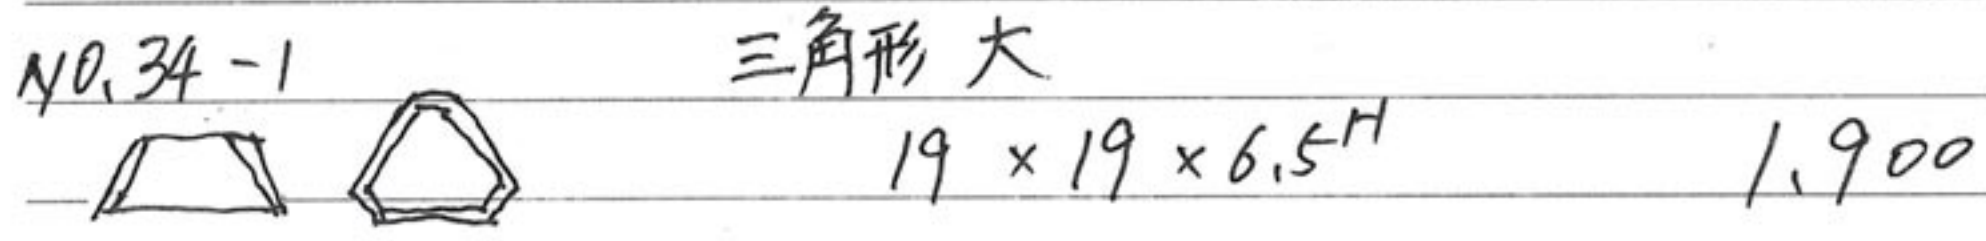 NO.34-1 三角形 大
19 × 19 × 6.5H 1.900